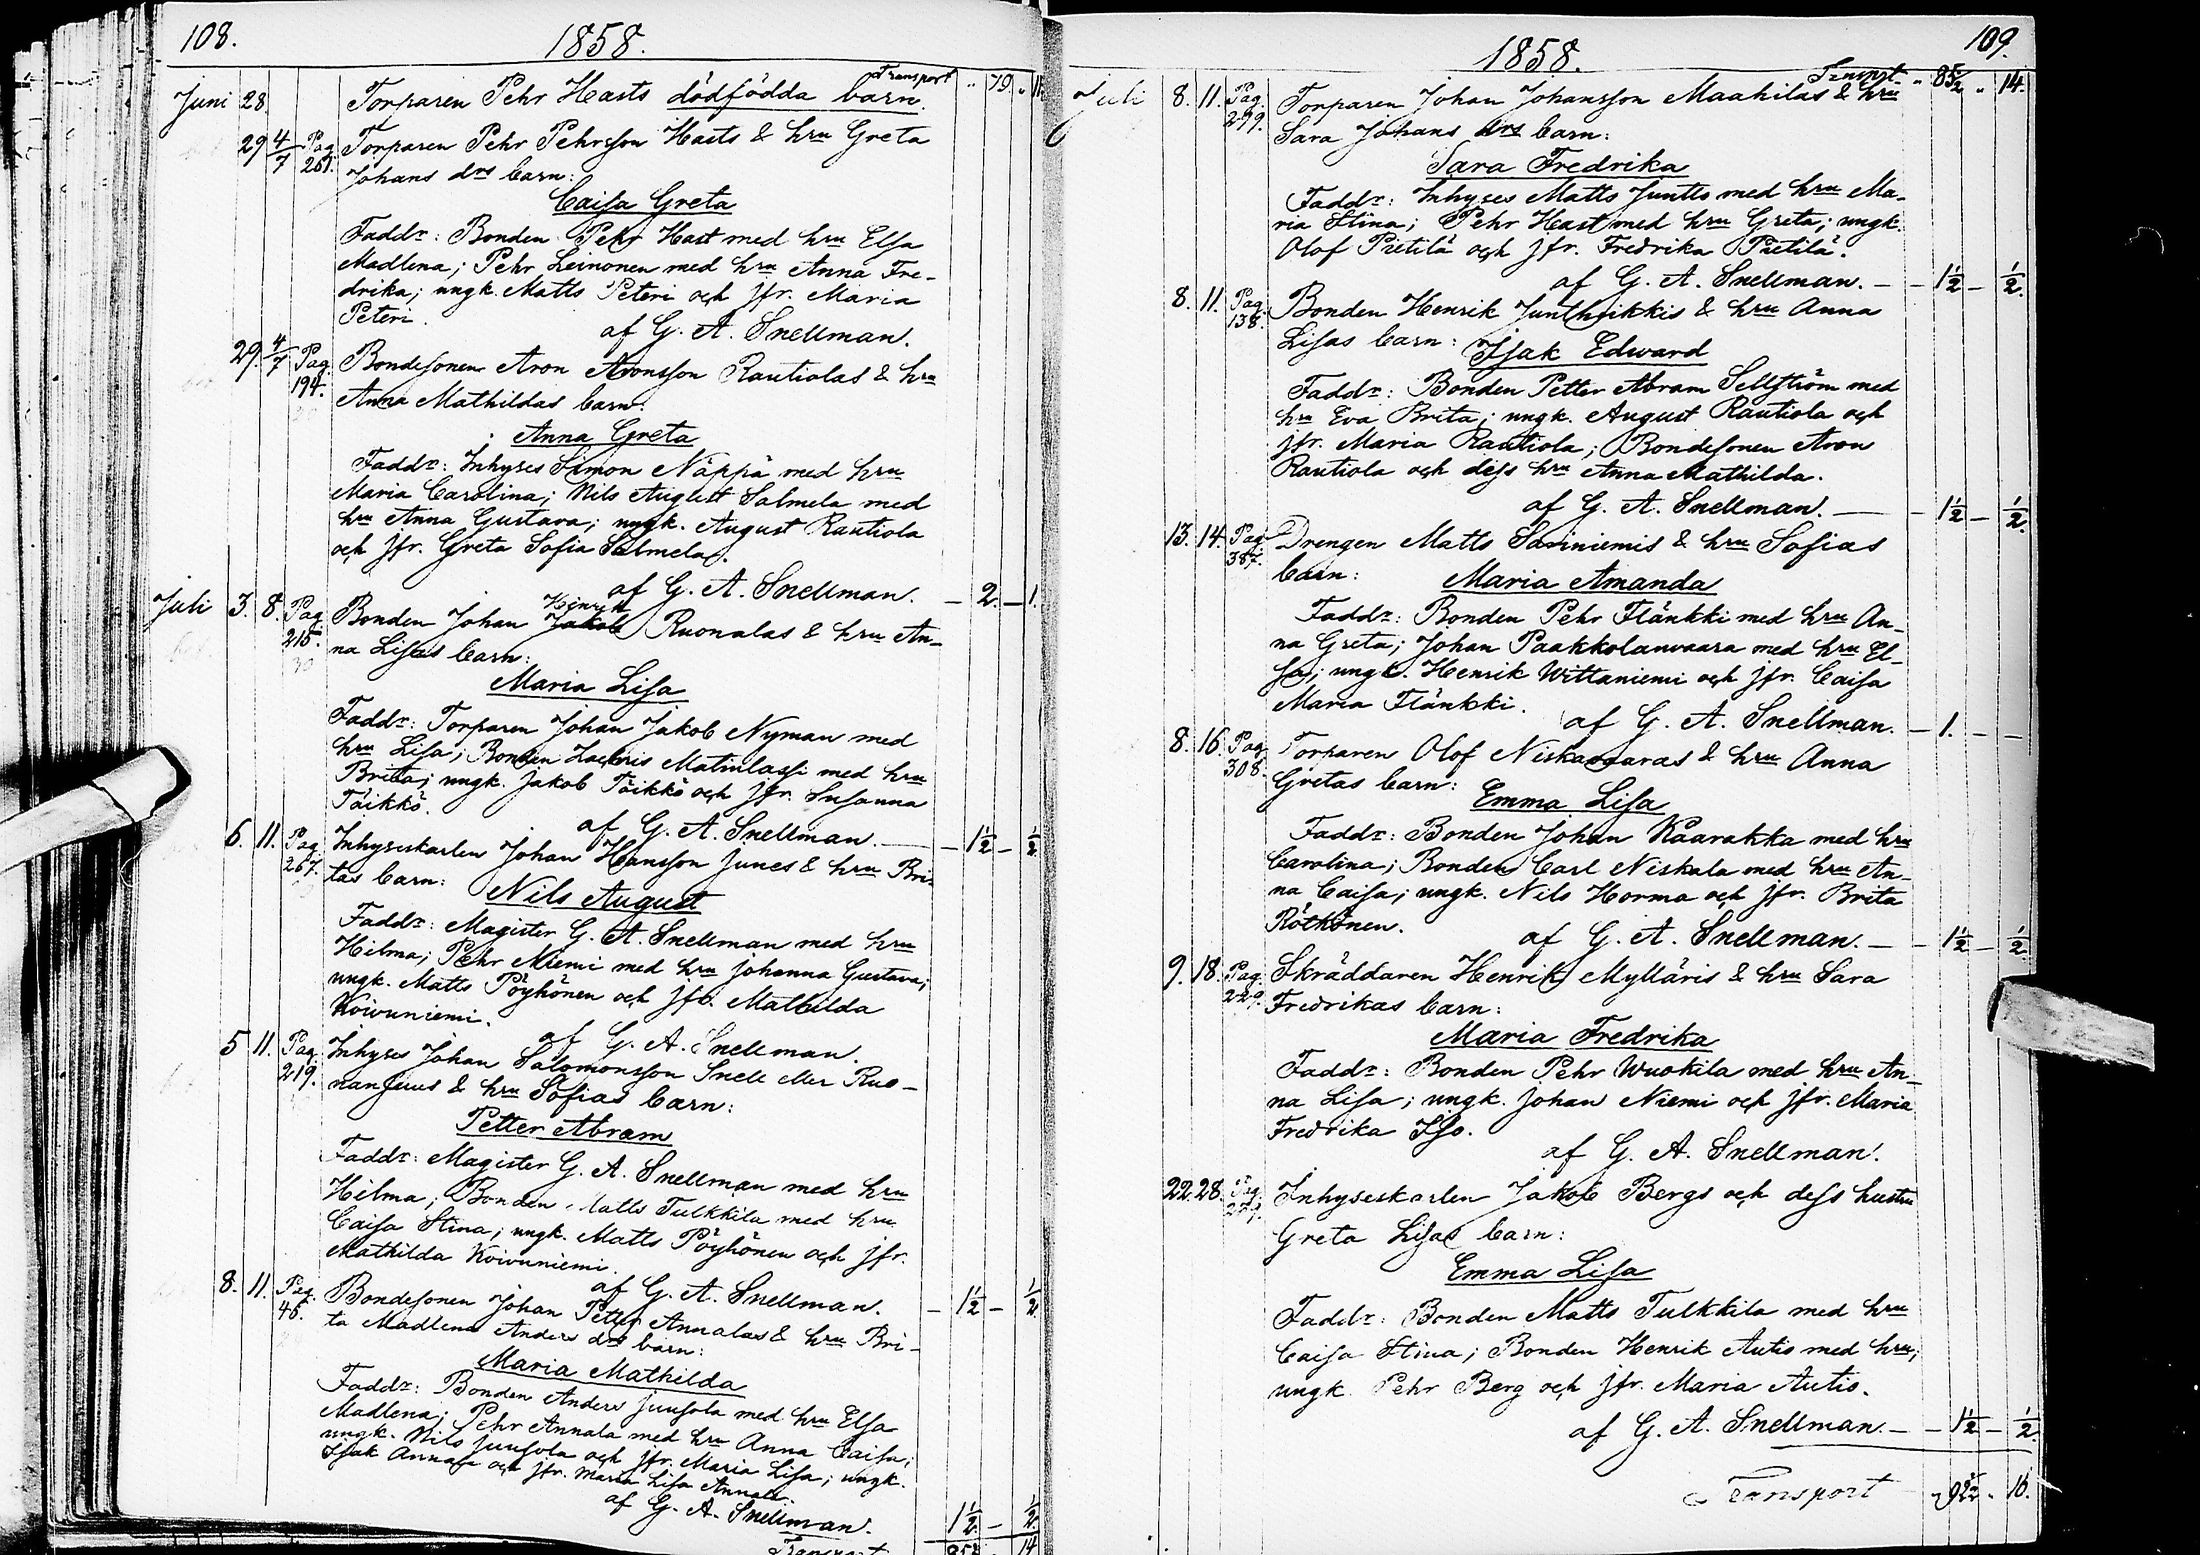 108.
1858.
Transport " 79. " 11.
Juni 28. Torparen Pehr Hasts dödfödda barn.
29 4/7 Pag. 261. Torparen Pehr Pehrsson Hasts & hru Greta
Johans drs barn:
Caisa Greta
Faddr: Bonden Pehr Hast med hru Elsa
Madlena; Pehr Leinonen med hru Anna Fre-
drika; ungk. Matts Peteri och jfr. Maria
Peteri.
af G. A. Snellman.
29. 4/7 Pag. 194. Bondesonen Aron Aronsson Rautiolas & hru
Anna Mathildas barn:
Anna Greta
Faddr: Inhyses Simon Näppä med hru
Maria Carolina; Nils August Salmela med
hru Anna Gustava; ungk. August Rautiola
och jfr. Greta Sofia Salmela.
af G. A. Snellman. — 2. — 1.
Henrik
Juli 3. 8. Pag. 215. Bonden Johan Jakob Ruonalas & hru An-
na Lisas barn:
Maria Lisa
Faddr: Torparen Johan Jakob Nyman med
hru Lisa; Bonden Zachris Matinlassi med hru
Brita; ungk. Jakob Töikkö och jfr. Susanna
Töikkö.
af G. A. Snellman. — 1 1/2 — 1/2
6. 11. Pag. 267. Inhyseskarlen Johan Hansson Junes & hru Bri-
tas barn:
Nils August
Faddr: Magister G. A. Snellman med hru
Hilma; Pehr Niemi med hru Johanna Gustava;
ungk. Matts Pöyhönen och jfr. Mathilda
Koivuniemi.
af G. A. Snellman.
5 11. Pag. 219. Inhyses Johan Salomonsson Snell eller Ruo-
nanjuus & hru Sofias barn:
Petter Abram
Faddr: Magister G. A. Snellman med hru
Hilma; Bonden Matts Tulkkila med hru
Caisa Stina; ungk. Matts Pöyhönen och jfr.
Mathilda Koivuniemi.
af G. A. Snellman. — 1 1/2 — 1/2
8. 11. Pag. 46. Bondesonen Johan Petter Annalas & hru Bri-
ta Madlena Anders drs barn:
Maria Mathilda
Faddr: Bonden Anders Juusola med hru Elsa
Madlena; Pehr Annala med hru Anna Caisa;
ungk. Nils Juusola och jfr. Maria Lisa; ungk.
Isak Annala och jfr. Maria Lisa Annala.
af G. A. Snellman. 1 1/2 — 1/2
Transport 14
1858.
109.
Transpt. " 85/2 " 14.
Juli 8. 11. Pag. 299. Torparen Johan Johansson Maahilas & hru
Sara Johans drs barn:
Sara Fredrika
Faddr: Inhyses Matts Juntto med hru Ma-
ria Stina; Pehr Hast med hru Greta; ungk.
Olof Pietilä och jfr. Fredrika Pietilä.
af G. A. Snellman. — 1 1/2 — 1/2
8. 11. Pag. 138. Bonden Henrik Junthuikkis & hru Anna
Lisas barn:
Isak Edward
Faddr: Bonden Petter Abram Sellström med
hru Eva Brita; ungk. August Rautiola och
jfr. Maria Rautiola; Bondesonen Aron
Rautiola och dess hru Anna Mathilda.
af G. A. Snellman. — 1 1/2 — 1/2
13. 14. Pag. 387. Drengen Matts Sariniemis & hru Sofias
barn:
Maria Amanda
Faddr: Bonden Pehr Flänkki med hru An-
na Greta; Johan Paakkolanvaara med hru El-
sa; ungk. Henrik Wittaniemi och jfr. Caisa
Maria Flänkki.
af G. A. Snellman. — 1. — —
8. 16. Pag. 308. Torparen Olof Niskavaaras & hru Anna
Gretas barn:
Emma Lisa
Faddr: Bonden Johan Kaarakka med hru
Carolina; Bonden Carl Niskala med hru An-
na Caisa; ungk. Nils Horma och jfr. Brita
Rötkönen.
af G. A. Snellman. — 1 1/2 — 1/2
9. 18. Pag. 229. Skräddaren Henrik Mylläris & hru Sara
Fredrikas barn:
Maria Fredrika
Faddr: Bonden Pehr Wuokila med hru An-
na Lisa; ungk. Johan Niemi och jfr. Maria
Fredrika Iso.
af G. A. Snellman.
22. 28. Pag. Inhyseskarlen Jakob Bergs och dess hustru
Greta Lisas barn:
Emma Lisa
Faddr: Bonden Matts Tulkkila med hru
Caisa Stina; Bonden Henrik Autio med hru;
ungk. Pehr Berg och jfr. Maria Autio.
af G. A. Snellman. — 1 1/2 — 1/2
Transport 16.